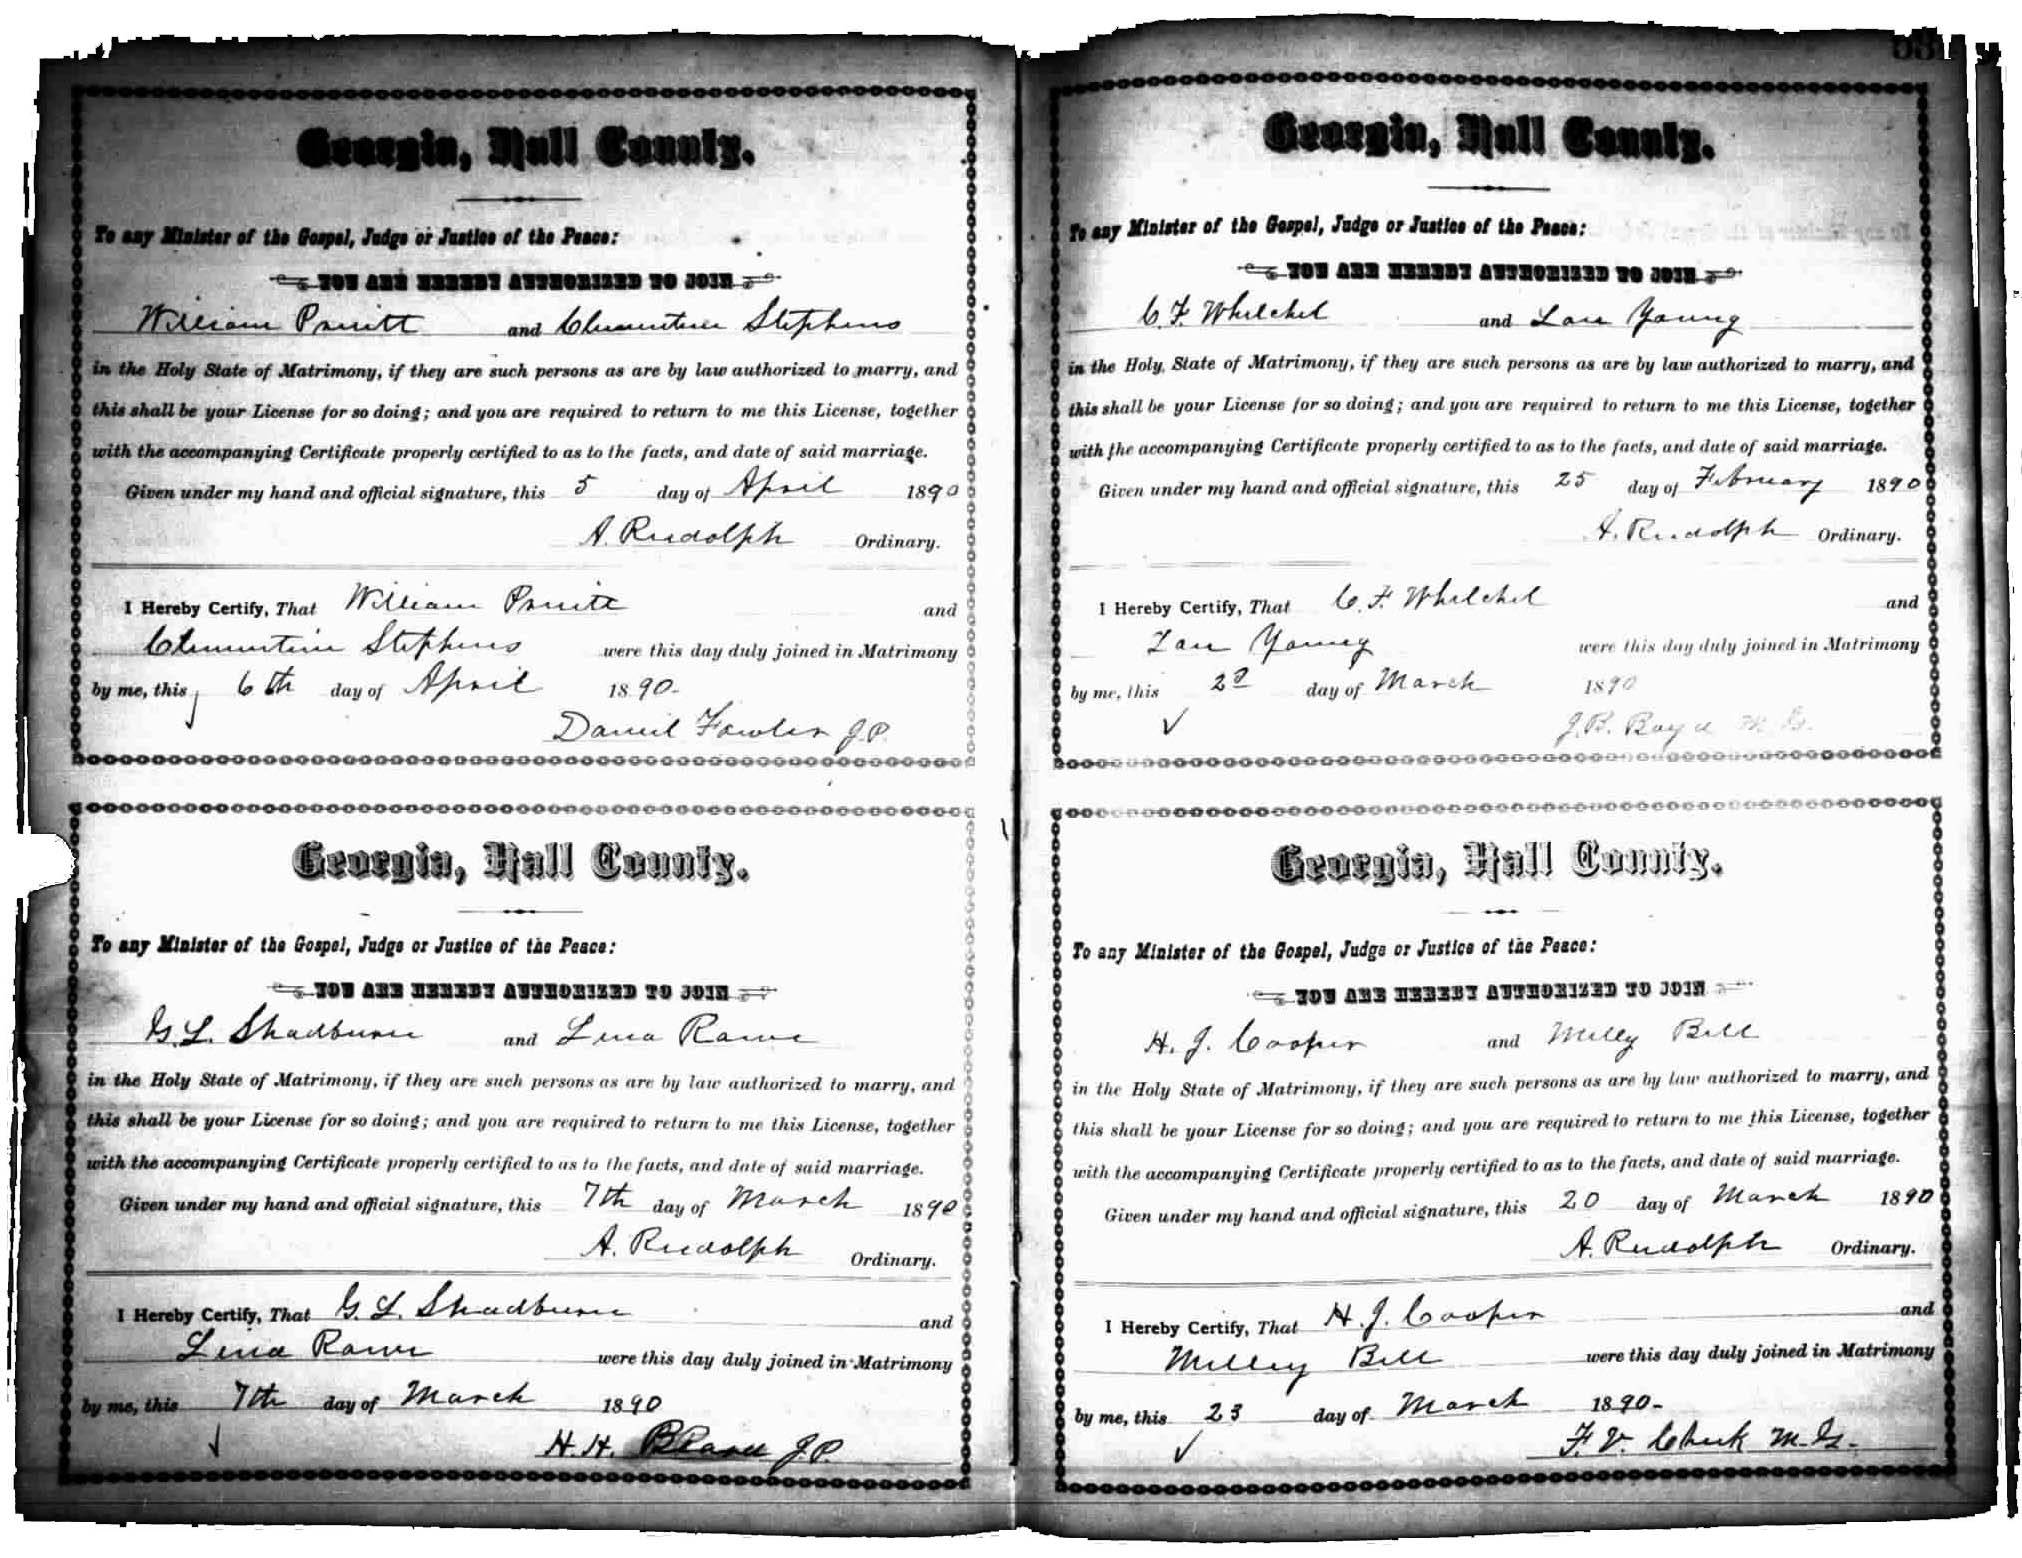 Georgia, Hall County.
To any Minister of the Gospel, Judge or Justice of the Peace:
YOU ARE HEREBY AUTHORIZED TO JOIN
William Pruitt and Clementine Stephens
in the Holy State of Matrimony, if they are such persons as are by law authorized to marry, and
this shall be your License for so doing; and you are required to return to me this License, together
with the accompanying Certificate properly certified to as to the facts, and date of said marriage.
Given under my hand and official signature, this 5 day of April 1890
A. Rudolph Ordinary.
I Hereby Certify, That William Pruitt and
Clementine Stephens were this day duly joined in Matrimony
by me, this 6th day of April 1890-
Daniel Fowler J.P.
Georgia, Hall County.
To any Minister of the Gospel, Judge or Justice of the Peace:
YOU ARE HEREBY AUTHORIZED TO JOIN
G. L. Shadburn and Lena Rowe
in the Holy State of Matrimony, if they are such persons as are by law authorized to marry, and
this shall be your License for so doing; and you are required to return to me this License, together
with the accompanying Certificate properly certified to as to the facts, and date of said marriage.
Given under my hand and official signature, this 7th day of March 1890
A. Rudolph Ordinary.
I Hereby Certify, That G. L. Shadburn and
Lena Rowe were this day duly joined in Matrimony
by me, this 7th day of March 1890
H. H. J.P.
Georgia, Hall County.
To any Minister of the Gospel, Judge or Justice of the Peace:
YOU ARE HEREBY AUTHORIZED TO JOIN
C. F. Whelchel and Lou Young
in the Holy State of Matrimony, if they are such persons as are by law authorized to marry, and
this shall be your License for so doing; and you are required to return to me this License, together
with the accompanying Certificate properly certified to as to the facts, and date of said marriage.
Given under my hand and official signature, this 25 day of February 1890
A. Rudolph Ordinary.
I Hereby Certify, That C. F. Whelchel and
Lou Young were this day duly joined in Matrimony
by me, this 2d day of March 1890
J. B. Boyd M. G.
Georgia, Hall County.
To any Minister of the Gospel, Judge or Justice of the Peace:
YOU ARE HEREBY AUTHORIZED TO JOIN
H. J. Cooper and Milly Bell
in the Holy State of Matrimony, if they are such persons as are by law authorized to marry, and
this shall be your License for so doing; and you are required to return to me this License, together
with the accompanying Certificate properly certified to as to the facts, and date of said marriage.
Given under my hand and official signature, this 20 day of March 1890
A. Rudolph Ordinary.
I Hereby Certify, That H. J. Cooper and
Milley Bell were this day duly joined in Matrimony
by me, this 23 day of March 1890-
F. V. Cheek M. G.